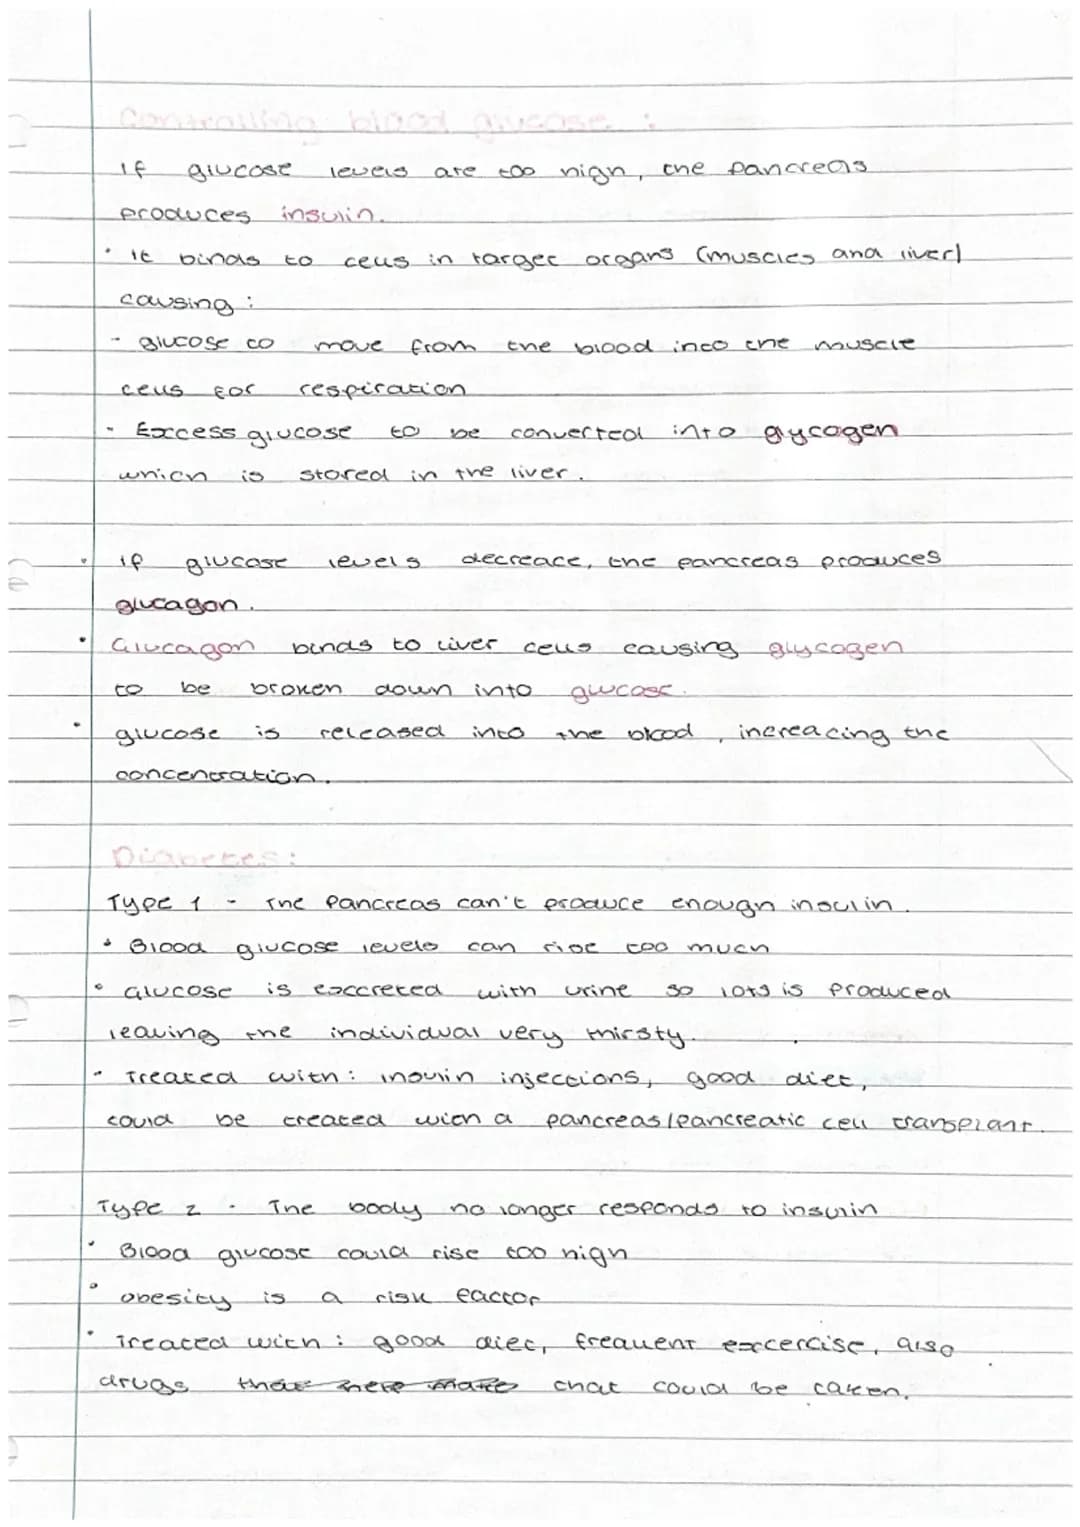 Controlling blood glucose :
If glucose levels are too high, the pancreas
produces insulin.
• It binds to cells in target organs (muscles and liver)
causing :
- glucose to move from the blood into the muscle
cells for respiration
- Excess glucose to be converted into glycogen
which is stored in the liver.
• If glucose levels decreace, the pancreas produces
glucagon.
• Glucagon binds to liver cells causing glycogen
to be broken down into glucose.
• glucose is released into the blood, increacing the
concentration.
Diabetes:
Type 1 - The pancreas can't produce enough insulin.
• Blood glucose levels can rise too much
• Glucose is excreted with urine so lots is produced
leaving the individual very thirsty.
• Treated with: insulin injections, good diet,
could be treated with a pancreas/pancreatic cell transplant.
Type 2 - The body no longer responds to insulin
• Blood glucose could rise too high
• obesity is a risk factor
• Treated with: good diet, frequent excercise, also
drugs that here make that could be taken.